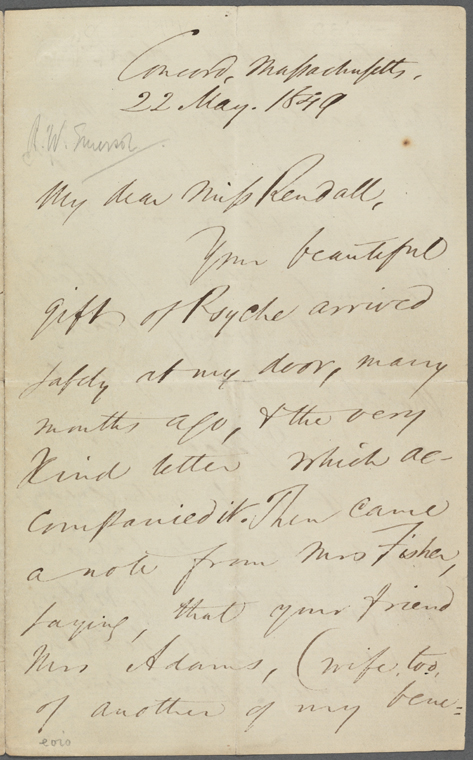 Concord, Massachusetts,
22 May. 1849
R. W. Emerson
My dear Miss Rendall,
Your beautiful
gift of Psyche arrived
safely at my door, many
months ago, & the very
kind letter which ac-
companied it. Then came
a note from Mrs Fisher,
saying, that your friend
Mrs Adams, (wife, too,
of another of my bene=